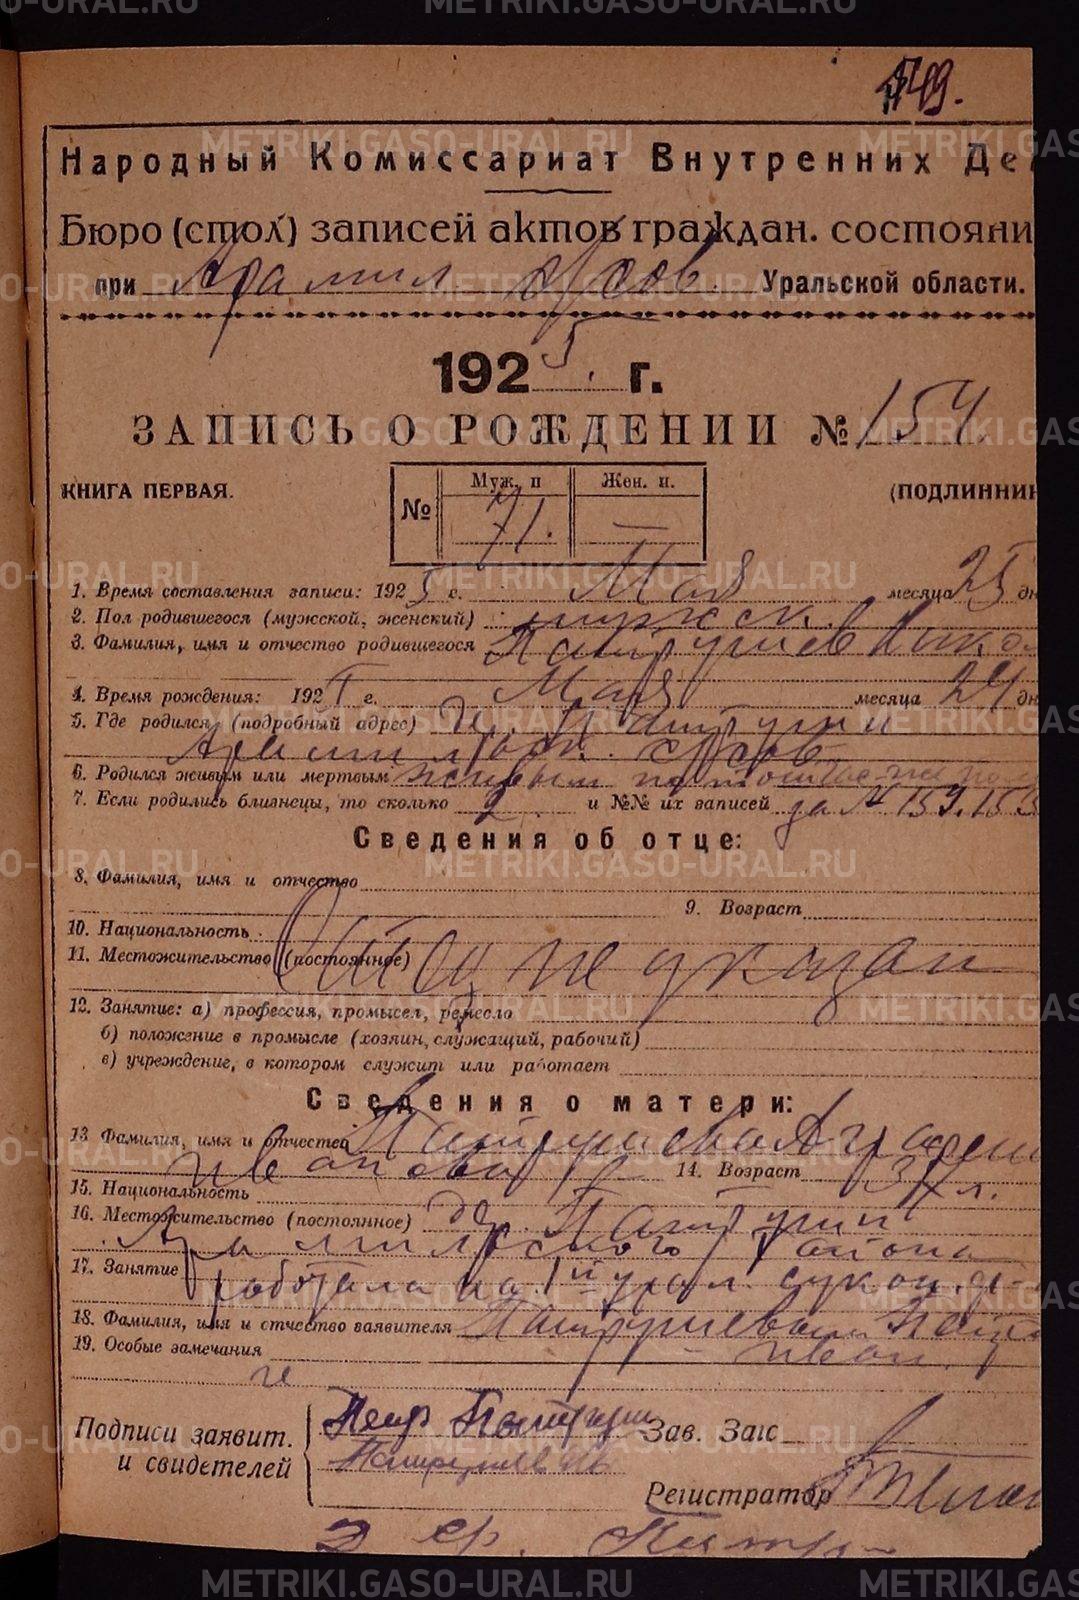 149.
Народный Комиссариат Внутренних Де
Бюро (стол) записей актов граждан. состояни
при Арамил Уральской области.
1925 г.
ЗАПИСЬ О РОЖДЕНИИ № 154
КНИГА ПЕРВАЯ. (ПОДЛИННИ
№ Муж. п Жен. п.
71. —
1. Время составления записи: 1925 г. Мая месяца 25 дн
2. Пол родившегося (мужской, женский) мужск.
3. Фамилия, имя и отчество родившегося Патрушев Нико
4. Время рождения: 192 г. Мая месяца 24 дн
5. Где родился (подробный адрес) де. Патруши
Арамильск.
6. Родился живым или мертвым живым
7. Если родились близнецы, то сколько 2 и №№ их записей за № 154. 153
Сведения об отце:
8. Фамилия, имя и отчество
9. Возраст
10. Национальность
11. Местожительство (постоянное)
Отец не указан
12. Занятие: а) профессия, промысел, ремесло
б) положение в промысле (хозяин, служащий, рабочий)
в) учреждение, в котором служит или работает
Сведения о матери:
13 Фамилия, имя и отчество Патрушева Аграфен
Ивановна 14. Возраст 34 л.
15. Национальность р
16. Местожительство (постоянное) де. Патруши
Арамильского района
17. Занятие работала на 1й урал. сукон. ф-
18. Фамилия, имя и отчество заявителя Патрушевым Петр
19. Особые замечания Иван.
Подписи заявит. Петр Патруш Зав. Загс
и свидетелей Патрушев Ив
Регистратор